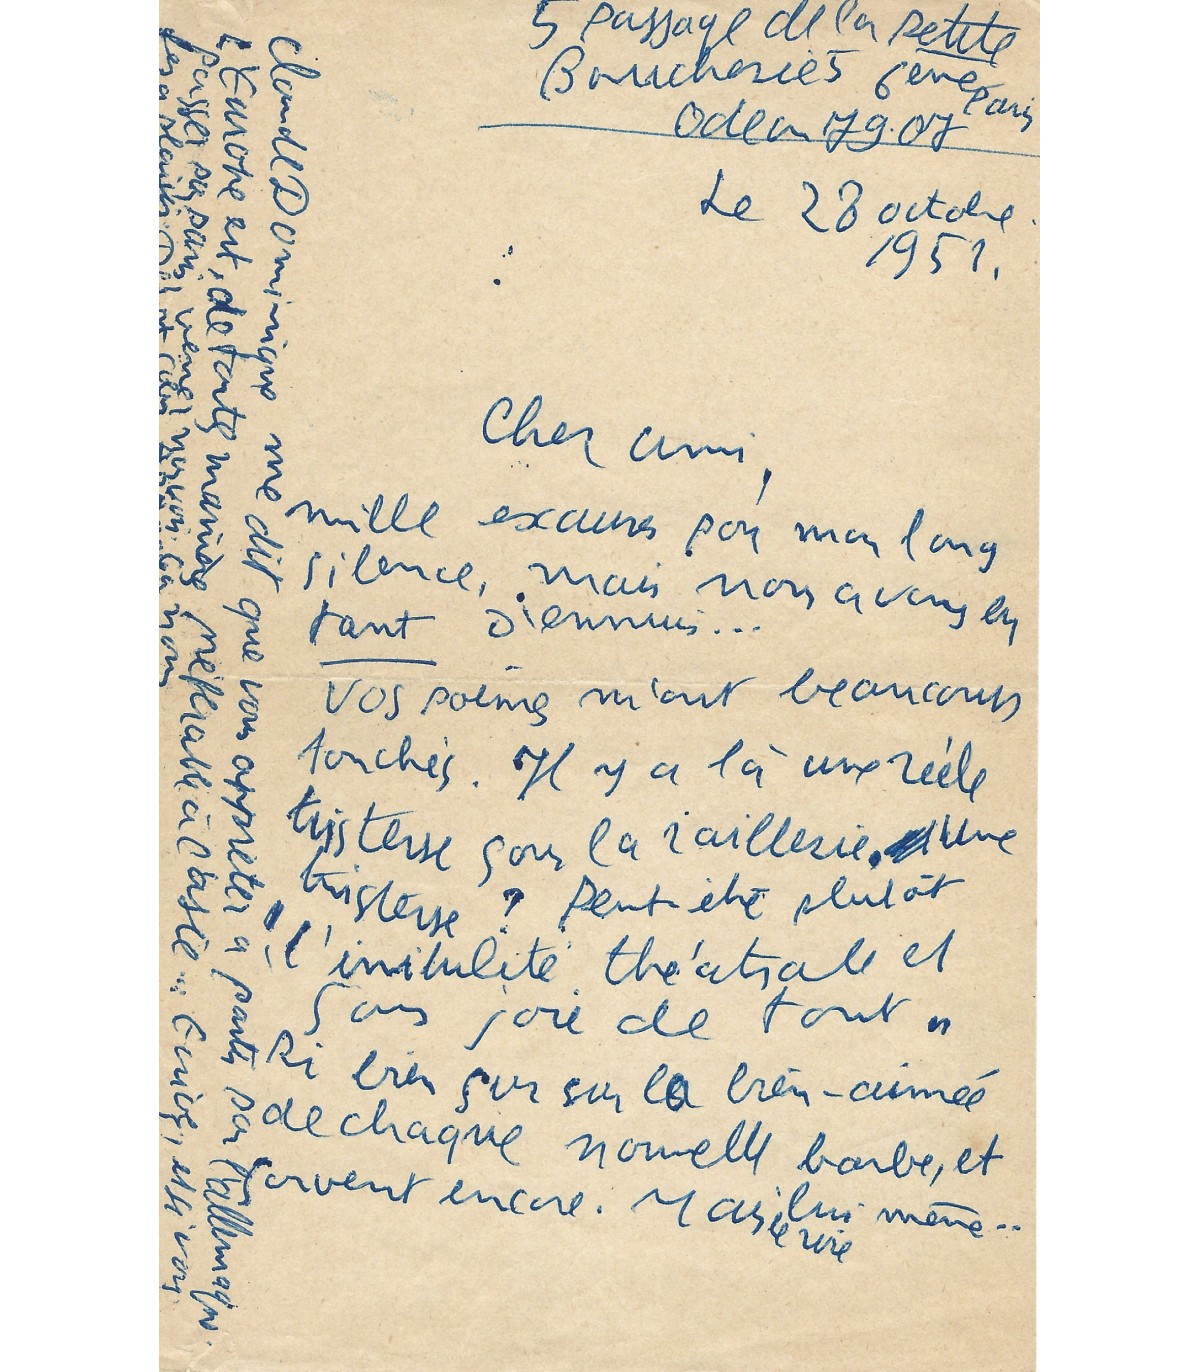 5 passage de la petite
Boucherie 5 6ème Paris
Odeon 79.07
Le 28 octobre
1951.
Cher ami,
mille excuses pour mon long
silence, mais nous avons eu
tant d'ennuis...
Vos poèmes m'ont beaucoup
touchés. Il y a là une réelle
tristesse sous la raillerie. Une
tristesse ? Peut-être plutôt
l'inutilité théâtrale et
sans joie de tout..
Si bien sur la bien-aimée
de chaque nouvelle barbe, et
souvent encore. Mais lui même..
Claude Dominique me dit que vous appretez à partir par l'Allemagne.
L'Europe est, de toute manière préférable à l'Asie... Ecrivez, et si vous
passez par Paris venez nous voir. Ca nous